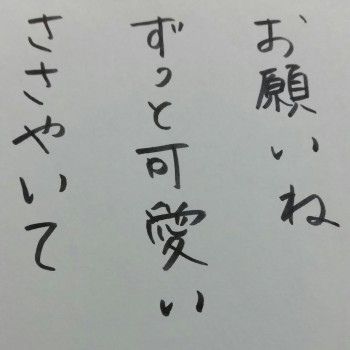 お願いね
ずっと可愛い
ささやいて